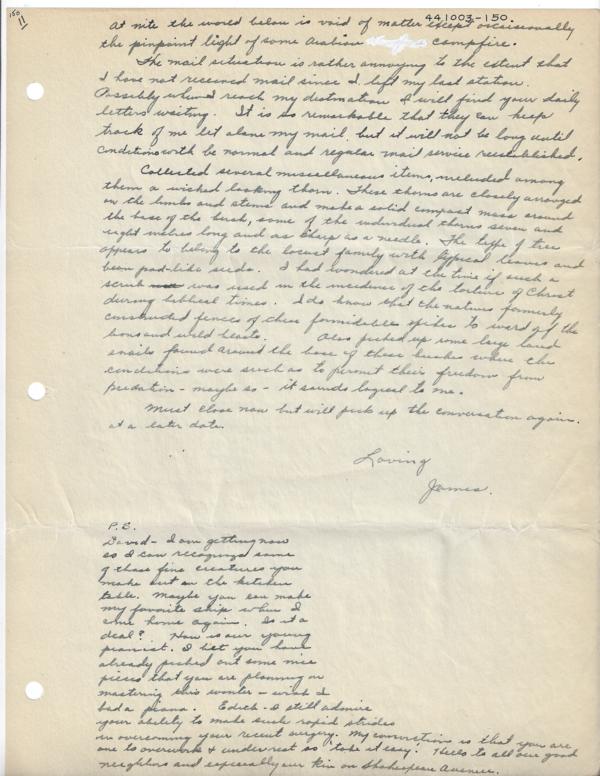 150
11
441003-150.
At nite the world below is void of matter except occasionally
the pinpoint light of some Arabian campfire.
The mail situation is rather annoying to the extent that
I have not received mail since I left my last station.
Possibly when I reach my destination I will find your daily
letters waiting. It is so remarkable that they can keep
track of me let alone my mail, but it will not be long until
conditions will be normal and regular mail service reestablished.
Collected several miscellaneous items, included among
them a wicked looking thorn. These thorns are closely arranged
on the limbs and stems and make a solid compact mass around
the base of the bush, some of the individual thorns seven and
eight inches long and as sharp as a needle. The type of tree
appears to belong to the locust family with typical leaves and
bean pod-like seeds. I had wondered at the time if such a
scrub was used in the incidence of the torture of Christ
during biblical times. I do know that the natives formerly
constructed fences of these formidable spikes to ward off the
lions and wild beasts. Also picked up some large land
snails found around the base of these bushes where the
conditions were such as to permit their freedom from
predation - maybe so - it sounds logical to me.
Must close now but will pick up the conversation again
at a later date.
Loving
James.
P.S.
David - I am getting now
so I can recognize some
of those fine creatures you
make out on the kitchen
table. Maybe you can make
my favorite ship when I
come home again. Is it a
deal? How is our young
pianist. I bet you have
already picked out some nice
pieces that you are planning on
mastering this winter - wish I
had a piano. Edith - I still admire
your ability to make such rapid strides
in overcoming your recent surgery. My convictions is that you are
one to overwork & underrest so "take it easy". Hello to all our good
neighbors and especially our kin on Shakespeare Avenue.